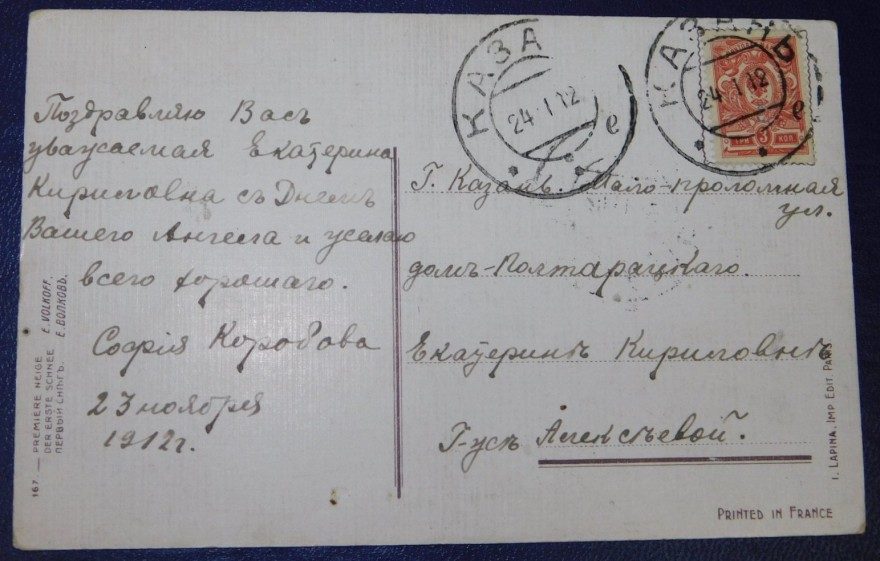 Поздравляю Васъ
уважаемая Екатерина
Кириловна съ Днемъ
Вашего Ангела и желаю
всего хорошаго.
София Коробова
23 ноября
1912г.
167. — PREMIÈRE NEIGE
DER ERSTE SCHNEE
ПЕРВЫЙ СНѢГЪ.
E. VOLKOFF.
Е. ВОЛКОВЪ.
КАЗА
24 1 12
е
КАЗАНЬ
24 1 12
е
ТРИ 3 КОП
Г. Казань. Мало-проломная
ул.
домъ-Полтарацкаго.
Екатеринѣ Кириловнѣ
Г-жѣ Алексѣевой.
I. LAPINA. IMP EDIT PARIS
PRINTED IN FRANCE